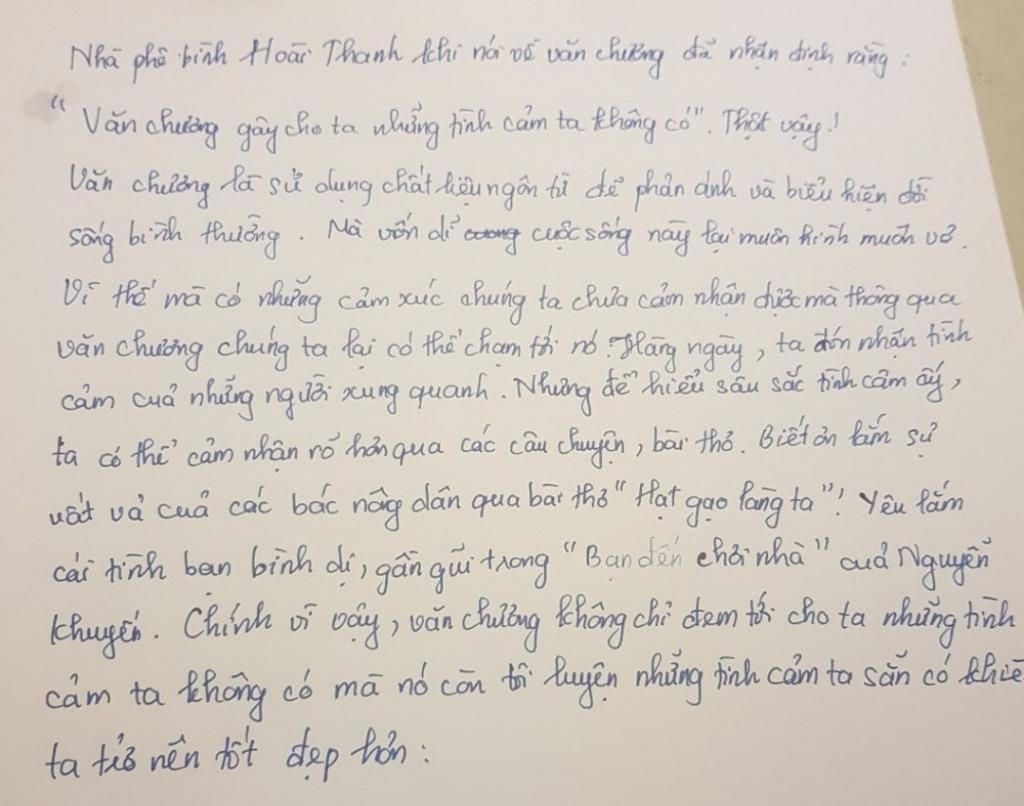 Nhà phê bình Hoài Thanh khi nói về văn chương đã nhận định rằng :
" Văn chương gây cho ta những tình cảm ta không có". Thật vậy!
Văn chương là sử dụng chất liệu ngôn từ để phản ánh và biểu hiện đời
sống bình thường. Mà vốn dĩ cuộc sống này lại muôn hình muôn vẻ.
Vì thế mà có những cảm xúc chúng ta chưa cảm nhận được mà thông qua
văn chương chúng ta lại có thể chạm tới nó. Hàng ngày, ta đón nhận tình
cảm của những người xung quanh. Nhưng để hiểu sâu sắc tình cảm ấy,
ta có thể cảm nhận rõ hơn qua các câu chuyện, bài thơ. Biết ơn lắm sự
vất vả của các bác nông dân qua bài thơ "Hạt gạo làng ta"! Yêu lắm
cái tình bạn bình dị, gần gũi trong "Bạn đến chơi nhà" của Nguyễn
Khuyến. Chính vì vậy, văn chương không chỉ đem tới cho ta những tình
cảm ta không có mà nó còn tôi luyện những tình cảm ta sẵn có khiế
ta trở nên tốt đẹp hơn :